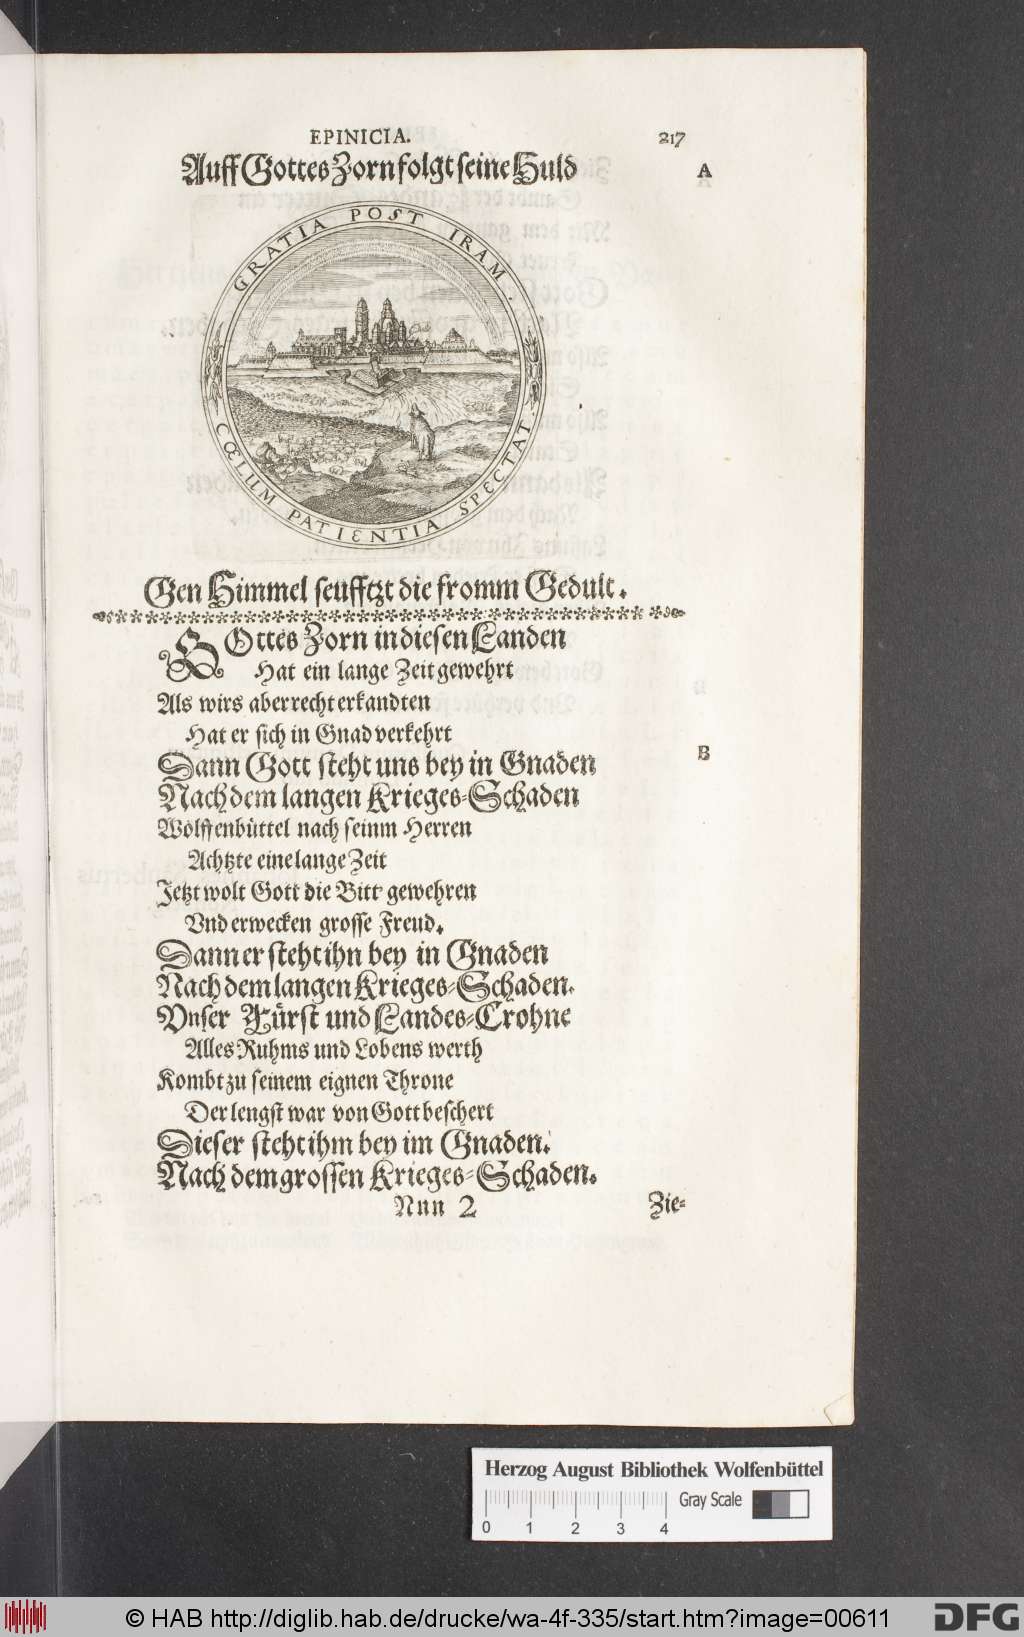 EPINICIA. 217
Auff Gottes Zorn folgt seine Huld A
GRATIA POST IRAM.
CŒLUM PATIENTIA SPECTAT
Gen Himmel seufftzt die fromm Gedult.
GOttes Zorn in diesen Landen
Hat ein lange Zeit gewehrt
Als wirs aber recht erkandten
Hat er sich in Gnad verkehrt
Dann Gott steht uns bey in Gnaden B
Nach dem langen Krieges-Schaden
Wolffenbüttel nach seinm Herren
Achtzte eine lange Zeit
Jetzt wolt Gott die Bitt gewehren
Vnd erwecken grosse Freud.
Dann er steht ihn bey in Gnaden
Nach dem langen Krieges-Schaden.
Vnser Fürst und Landes-Crohne
Alles Ruhms und Lobens werth
Kombt zu seinem eignen Throne
Der lengst war von Gott beschert
Dieser steht ihm bey im Gnaden.
Nach dem grossen Krieges-Schaden.
Nnn 2 Zie-
Herzog August Bibliothek Wolfenbüttel
Gray Scale
0 1 2 3 4
© HAB http://diglib.hab.de/drucke/wa-4f-335/start.htm?image=00611
DFG